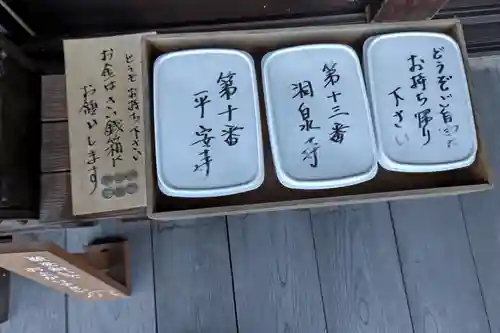 どうぞご
お持ち帰り
下さい
第十三番
洞泉寺
第十番
平安寺
どうぞお持ち下さい
お金はさい銭箱に
お願いします